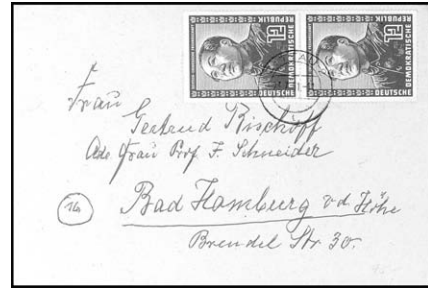 DEUTSCHE
DEMOKRATISCHE
REPUBLIK
12
DEUTSCHE
DEMOKRATISCHE
REPUBLIK
12
Frau
Gertrud Bischoff
Ade Frau Prof F. Schneider
16
Bad Homburg v d Höhe
Brendel Str 30.